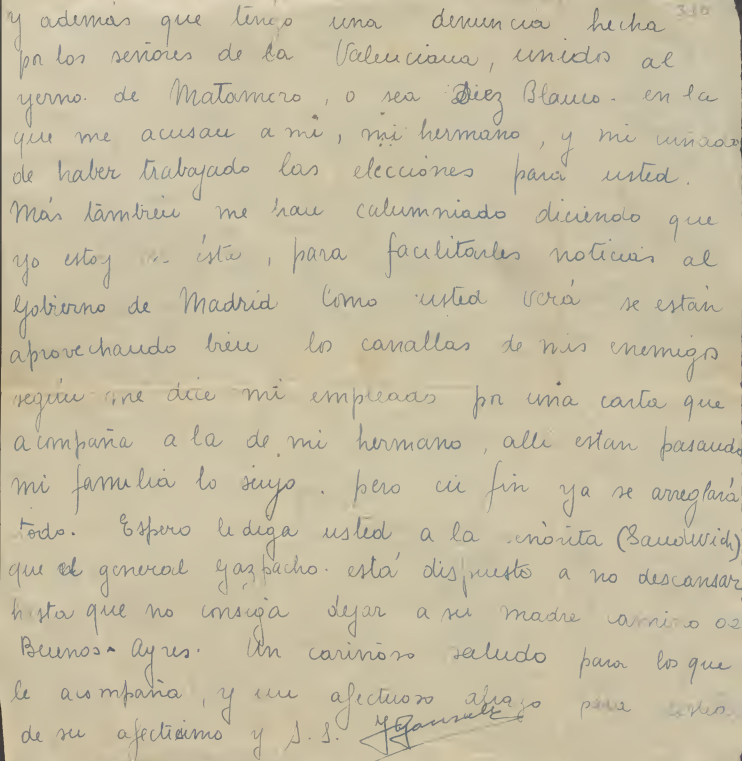 y además que tengo una denuncia hecha
por los señores de la Valenciana, unidos al
yerno. de Matamoro, o sea Diez Blanco. en la
que me acusan a mi, mi hermano, y mi cuñado
de haber trabajado las elecciones para usted.
Más tambien me han calumniado diciendo que
yo estoy en ésta, para facilitarles noticias al
Gobierno de Madrid Como usted verá se están
aprovechando bien los canallas de mis enemigos
según me dice mi empleado por una carta que
acompaña a la de mi hermano, alli estan pasando
mi familia lo suyo. pero en fin ya se arreglará
todo. Espero le diga usted a la señorita (Sandwich)
que el general Gazpacho. está dispuesto a no descansar
hasta que no consiga dejar a su madre camino de
Buenos-Ayres. Un cariñoso saludo para los que
le acompaña, y un afectuoso abrazo para
de su afectisimo y S.S.